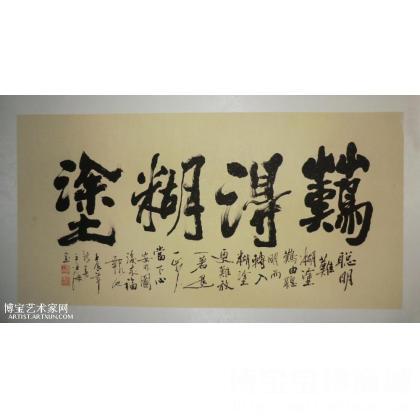 難得糊塗
聰明
難
糊塗
難由聰
明而
轉入
糊塗
更難放
一著退
一步
當下心
安非圖
後來福
報也
博宝艺术家网
ARTIST.ARTXUN.COM